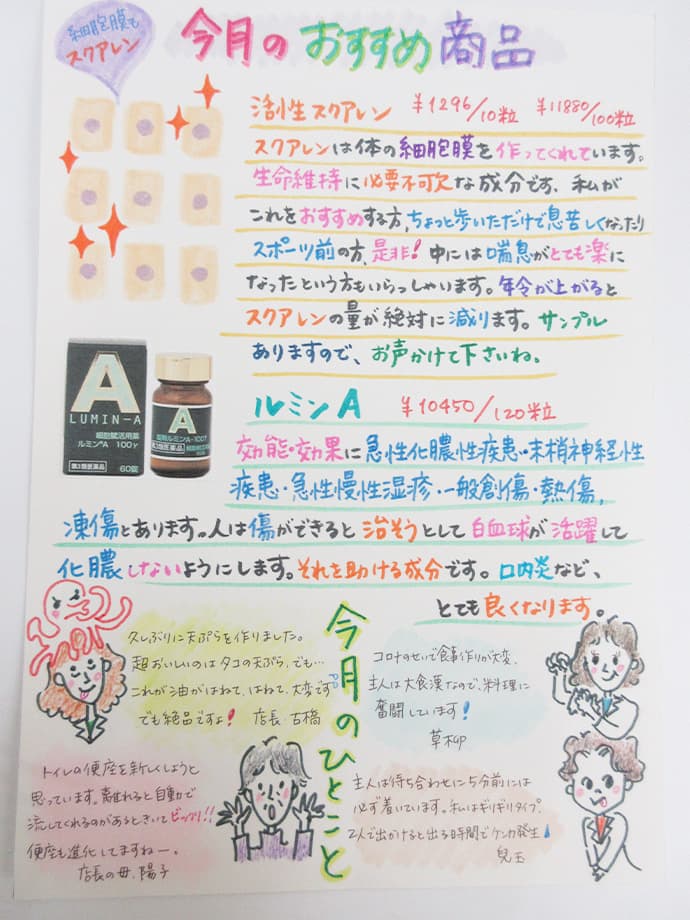 細胞膜も
スクアレン
今月のおすすめ商品
活性スクアレン ¥1296/10粒 ¥11880/100粒
スクアレンは体の細胞膜を作ってくれています。
生命維持に必要不可欠な成分です、私が
これをおすすめする方、ちょっと歩いただけで息苦しくなったり
スポーツ前の方、是非！中には喘息がとても楽に
なったという方もいらっしゃいます。年令が上がると
スクアレンの量が絶対に減ります。サンプル
ありますので、お声かけて下さいね。
A
LUMIN-A
細胞賦活用薬
ルミンA 100γ
第3類医薬品
60錠
A
錠剤ルミンA-100γ
第3類医薬品
ルミンA ¥10450/120粒
効能・効果に急性化膿性疾患・末梢神経性
疾患・急性慢性湿疹・一般創傷・熱傷，
凍傷とあります。人は傷ができると治そうとして白血球が活躍して
化膿しないようにします。それを助ける成分です。口内炎など、
とても良くなります。
今月のひとこと
久しぶりに天ぷらを作りました。
超おいしいのはタコの天ぷら、でも…
これが油がはねて、はねて、大変です
でも絶品ですよ！ 店長 古橋
コロナのせいで食事作りが大変、
主人は大食漢なので、料理に
奮闘しています！
草柳
トイレの便座を新しくしようと
思っています。離れると自動で
流してくれるのがあるときいてビックリ!!
便座も進化してますねー。
店長の母、陽子
主人は待ち合わせに5分前には
必ず着いています。私はギリギリタイプ。
2人で出かけると出る時間でケンカ発生
児玉